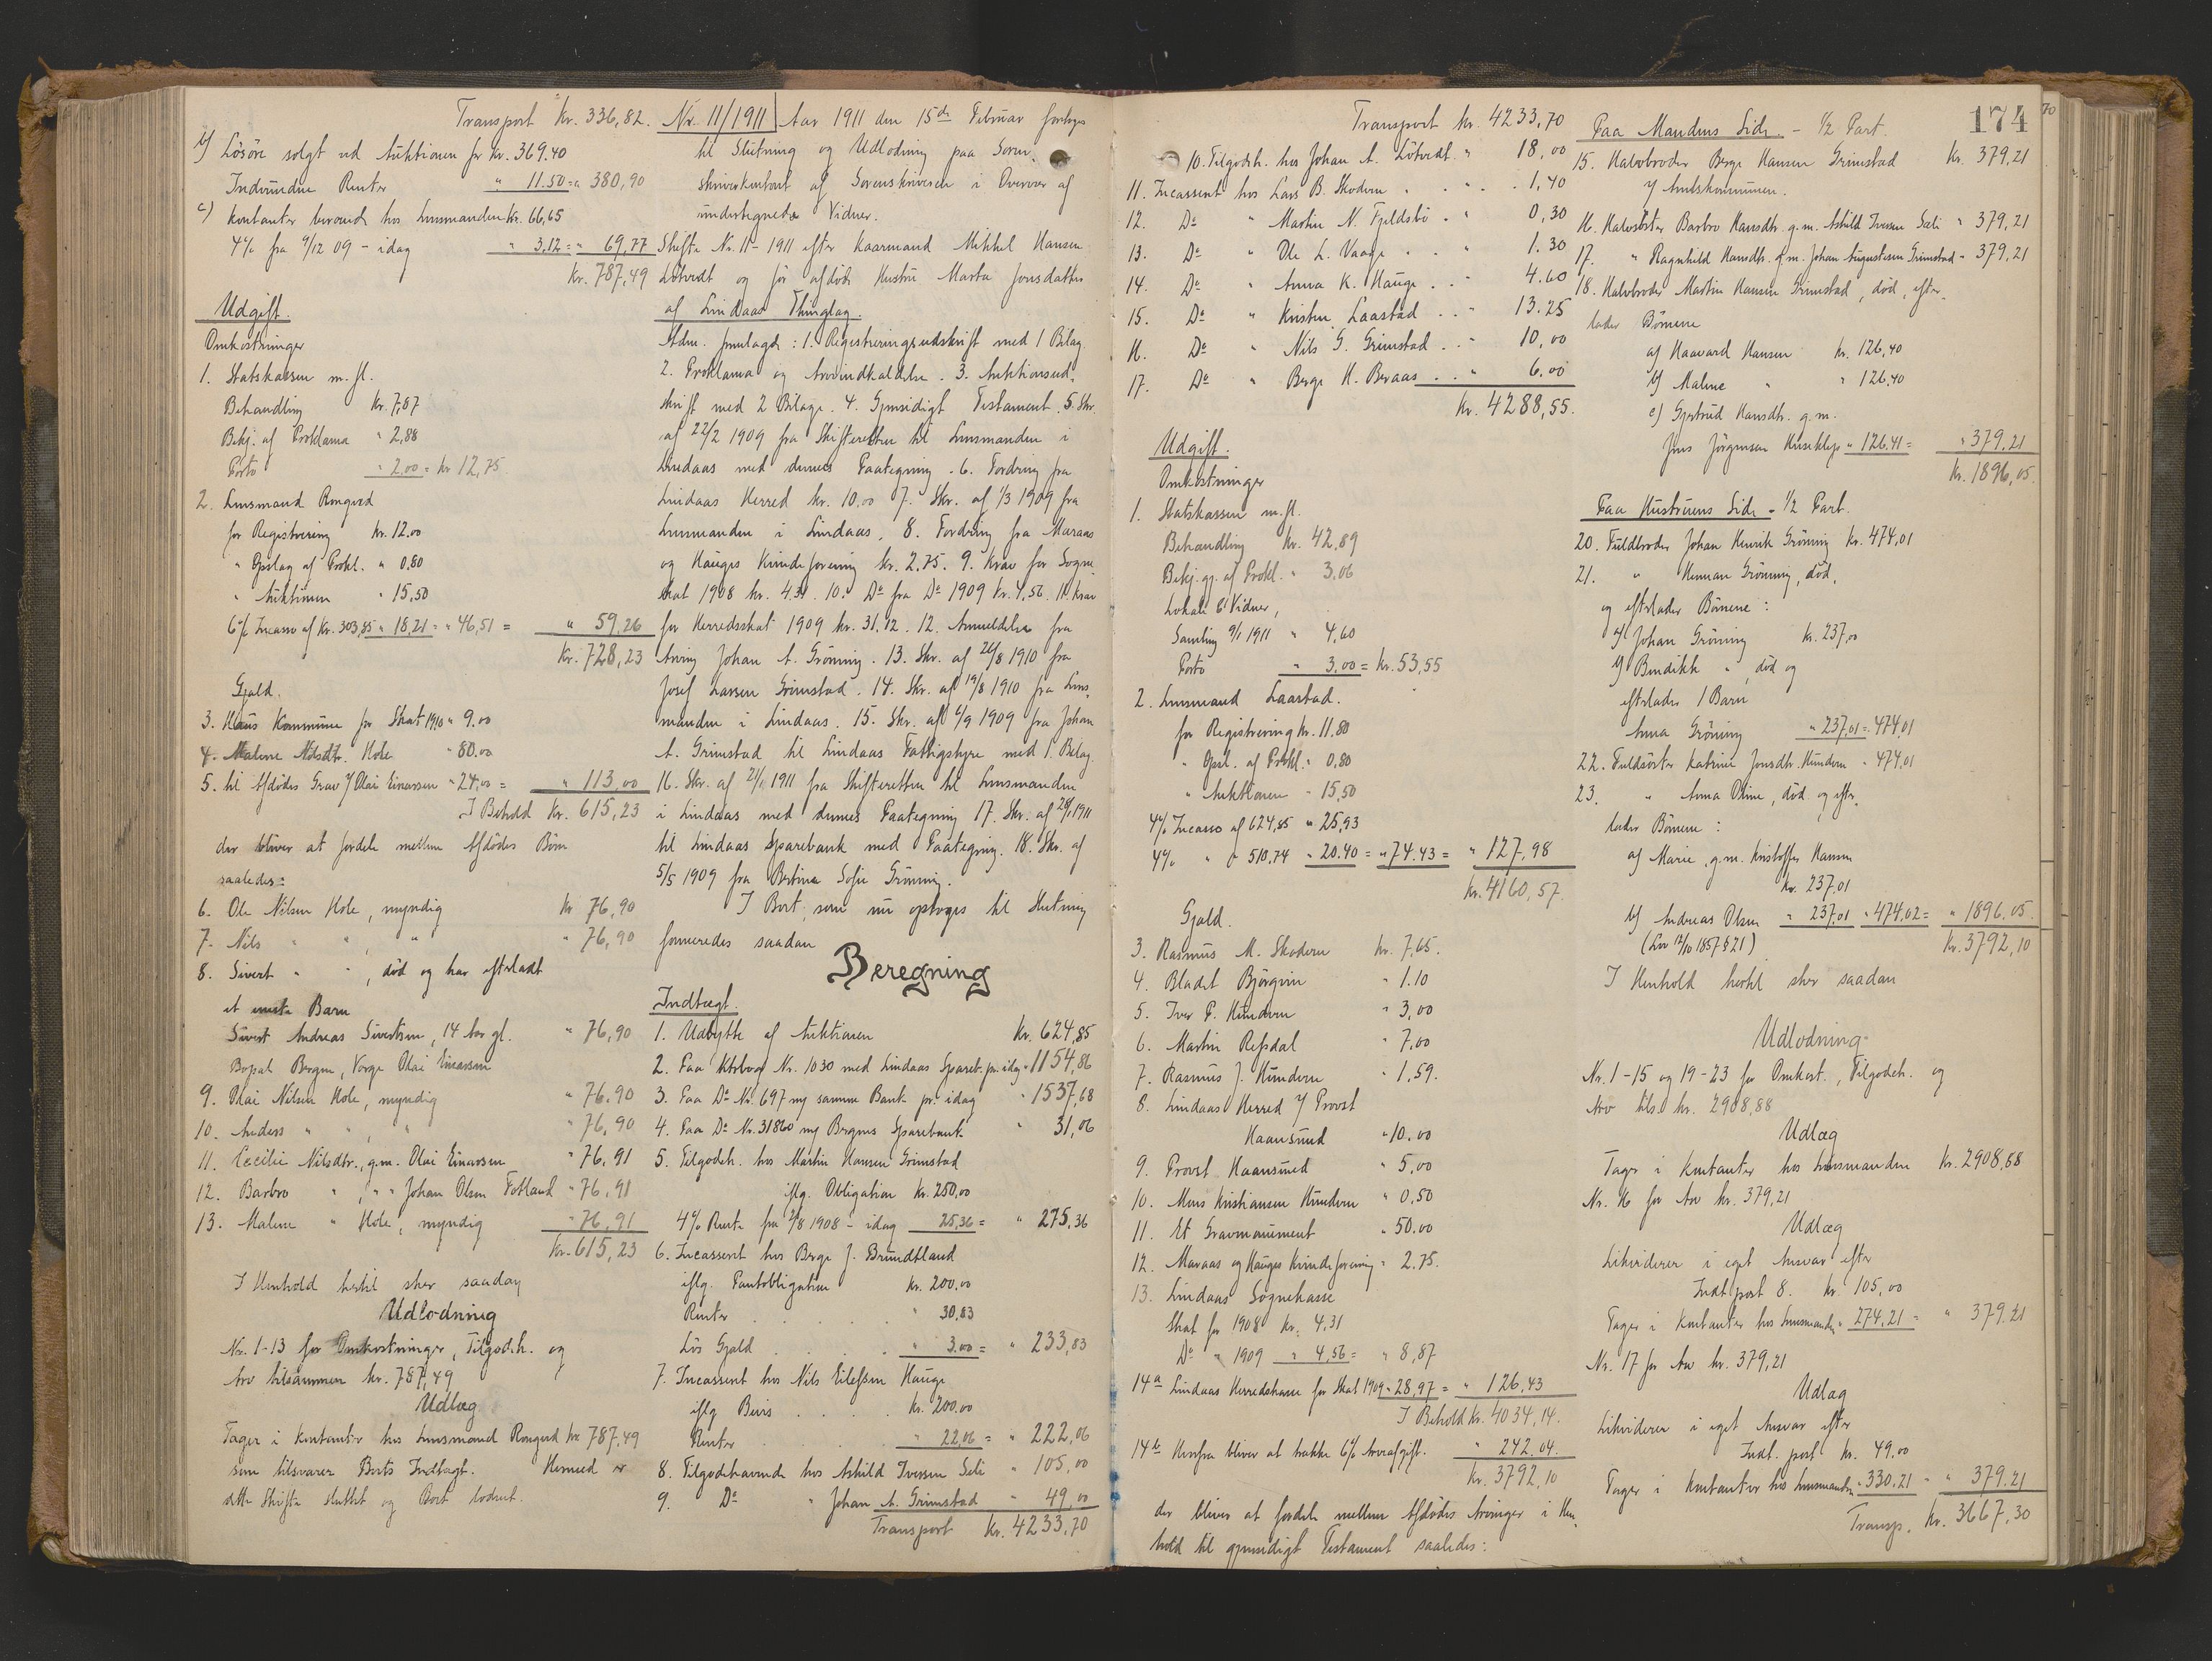 Transport Kr. 336,82.
b) Lösöre solgt ved Auktionen for Kr. 369.40
Indvundne Renter " 11.50 = " 380,90
c) Kontanter beroende hos Lensmanden Kr. 66,65
4% fra 9/12 09 - idag " 3,12 = " 69,77
Kr. 787,49
Udgift.
Omkostninger
1. Statskassen m. fl.
Behandling Kr. 7,87
Bekj. af Proklama " 2,88
Porto " 2,00 = Kr 12,75
2. Lensmand Rongved
for Registrering Kr. 12.00
" Opslag af Prokl. " 0,80
" Auktionen " 15,50
6% Incasso af Kr. 303,85 " 18,21 = " 46,51 = " 59,26
Kr. 728,23
Gjæld.
3. Haus Kommune for Skat 1910 " 9.00
4. Malene Nilsdtr. Hole " 80.00
5. til Afdødes Grav v/ Olai Einarsen " 24,00 = " 113,00
I Behold Kr. 615,23
der bliver at fordele mellem Afdødes Børn
saaledes:
6. Ole Nilsen Hole, myndig Kr 76,90
7. Nils " " , " " 76,90
8. Sivert " " , død og har efterladt
et eneste Barn
Sivert Andreas Sivertsen, 14 Aar gl. " 76,90
Bopæl Bergen, Verge Olai Einarsen
9. Olai Nilsen Hole, myndig " 76,90
10. Anders " " , " " 76,90
11. Cecilie Nilsdtr., g.m. Olai Einarsen " 76,91
12. Barbro " , " " Johan Olsen Totland " 76,91
13. Malene " Hole, myndig " 76,91
Kr. 615,23
I Henhold hertil sker saadan
Udlodning
Nr. 1-13 for Omkostninger, Tilgodeh. og
Arv tilsammen kr. 787,49
Udlæg
Tages i Kontanter hos Lensmand Rongved kr. 787,49
som tilsvarer Boets Indtægt. Hermed er
dette Skifte sluttet og Boet lodnet.
Nr. 11/1911 Aar 1911 den 15de Februar foretoges
til Slutning og Udlodning paa Soren-
skriverkontoret af Sorenskriveren i Overvær af
undertegnede Vidner.
Skifte Nr. 11 - 1911 efter Kaarmand Mikkel Hansen
Lötvedt og før afdøde Hustru Marta Jonsdatter
af Lindaas Thinglag.
Adm. fremlagde: 1. Registreringsudskrift med 1 Bilag
2. Proklama og Arveindkaldelse. 3. Auktionsud-
skrift med 2 Bilage. 4. Gjensidigt Testament. 5. Skr.
af 22/2 1909 fra Skifteretten til Lensmanden i
Lindaas med dennes Paategning. 6. Fordring fra
Lindaas Herred kr. 10.00 7. Skr. af 1/3 1909 fra
Lensmanden i Lindaas. 8. Fordring fra Maraas
og Hauges Kvindeforening kr. 2.75. 9. Krav for Sogne-
skat 1908 kr. 4.31. 10. Do fra Do 1909 kr. 4,56. 11. Krav
for Herredsskat 1909 kr. 31,12. 12. Anmeldelse fra
Arving Johan A. Gröning. 13. Skr. af 26/8 1910 fra
Josef Larsen Grimstad. 14. Skr. af 19/8 1910 fra Lens-
manden i Lindaas. 15. Skr. af 6/9 1909 fra Johan
A. Grimstad til Lindaas Fattigstyre med 1 Bilag
16. Skr. af 21/1 1911 fra Skifteretten til Lensmanden
i Lindaas med dennes Paategning 17. Skr. af 28/1 1911
til Lindaas Sparebank med Paategning. 18. Skr. af
5/5 1909 fra Bertine Sofie Gröning.
I Boet, som nu optoges til Slutning
formeredes saadan
Beregning
Indtægt.
1. Udbytte af Auktionen Kr. 624,85
2. Paa Ktrbog Nr. 1030 med Lindaas Spareb. pr. idag " 1154,86
3. Paa Do Nr. 697 m/ samme Bank pr. idag " 1537,68
4. Paa Do Nr. 31860 m/ Bergens Sparebank " 31,06
5. Tilgodeh. hos Martin Hansen Grimstad
iflg. Obligation Kr. 250,00
4% Rente fra 2/8 1908 - idag 25,36 = " 275,36
6. Incasseret hos Berge J. Brundtland
iflg. Panteobligation Kr. 200.00
Renter " 30,83
Løs Gjæld " 3.00 = " 233,83
7. Incasseret hos Nils Eilefsen Hauge
iflg Bevis Kr. 200.00
Renter " 22,06 = " 222,06
8. Tilgodehavende hos Askild Iversen Sæli " 105,00
9. Do " Johan A. Grimstad " 49,00
Transport Kr. 4233,70
174
70
Transport kr. 4233,70
10. Tilgodeh. hos Johan A. Lötvedt. " 18,00
11. Incasseret hos Lars B. Skodvin " 1,40
12. Do " Martin N. Fjeldsbö " 0,30
13. Do " Ole L. Vaage " 1.30
14. Do " Anna K. Hauge " 4.60
15. Do " Kristen Laastad " 13.25
16. Do " Nils G. Grimstad " 10,00
17. Do " Berge H. Beraas " 6.00
Kr. 4288,55.
Udgift.
Omkostninger
1. Statskassen m. fl.
Behandling Kr. 42,89
Bekj. gj. af Prokl. " 3.06
Lokale & Vidner,
Samling 9/1 1911 " 4,60
Porto " 3,00 = Kr. 53,55
2. Lensmand Laastad.
for Registrering Kr. 11.80
" Opsl. af Prokl. " 0,80
" Auktionen " 15,50
4% Incasso af 624,85 " 25,93
4% " " 510,74 " 20.40 = " 74.43 = " 127,98
Kr. 4160,57.
Gjæld.
3. Rasmus M. Skodvin Kr. 7,65.
4. Bladet Björgvin " 1.10
5. Iver P. Hundven " 3,00
6. Martin Refsdal " 7.00
7. Rasmus J. Hundven " 1,59.
8. Lindaas Herred v/ Provst
Kaarsund " 10.00
9. Provst Kaarsund " 5,00
10. Mons Kristiansen Hundven " 0,50
11. Et Gravmonument " 50.00
12. Maraas og Hauges Kvindeforening " 2.75.
13. Lindaas Sognekasse
Skat for 1908 Kr. 4.31
Do " 1909 " 4,56 = " 8,87
14a Lindaas Herredskasse for Skat 1909 " 28,97 = " 126,43
I Behold Kr. 4034,14.
14b Herfra bliver at trække 6% Arveafgift. " 242.04.
Kr. 3792,10
der bliver at fordele mellem Afdødes Arvinger i Hen-
hold til gjensidigt Testament saaledes:
Paa Mandens Side. - 1/2 Part.
15. Halvbroder Berge Hansen Grimstad Kr. 379,21
v/ Amtskommunen.
16. Halvsöster Barbro Hansdtr. g.m. Askild Iversen Sæli " 379,21
17. " Ragnhild Hansdtr. g.m. Johan Augustinsen Grimstad " 379,21
18. Halvbroder Martin Hansen Grimstad, död, efter-
lader Börnene
a) Haavard Hansen Kr. 126,40
b) Malene " " 126,40
c) Gjertrud Hansdtr. g.m.
Jens Jörgensen Huseklep " 126.41 = " 379,21
Kr. 1896,05.
Paa Hustruens Side - 1/2 Part.
20. Fuldbroder Johan Henrik Gröning Kr. 474,01
21. " Herman Gröning, död,
og efterlader Börnene:
a) Johan Gröning Kr. 237,00
b) Bendikte " , död og
efterlader 1 Barn
Anna Gröning " 237,01 = 474,01
22. Fuldsöster Katrine Jonsdtr. Hundven " 474,01
23. " Anna Oline, död og efter-
lader Börnene:
a) Marie, g.m. Kristoffer Hansen
Kr. 237.01
b) Andreas Olsen " 237,01 " 474,02 = " 1896,05
(Lov 12/10 1857 § 21) Kr. 3792,10
I Henhold hertil sker saadan
Udlodning
Nr. 1-15 og 19-23 for Omkost., Tilgodeh. og
Arv tils. kr. 2908,88
Udlæg
Tages i Kontanter hos Lensmanden Kr. 2908,68
Nr. 16 for Arv kr. 379,21
Udlæg
Likviderer i eget Ansvar efter
Indt. post 8. Kr. 105,00
Tages i Kontanter hos Lensmanden " 274,21 = " 379.21
Nr. 17 for Arv kr. 379,21
Udlæg
Likviderer i eget Ansvar efter
Indt. post Kr. 49,00
Tages i Kontanter hos Lensmanden " 330.21 = " 379.21
Transp. Kr. 3667,30